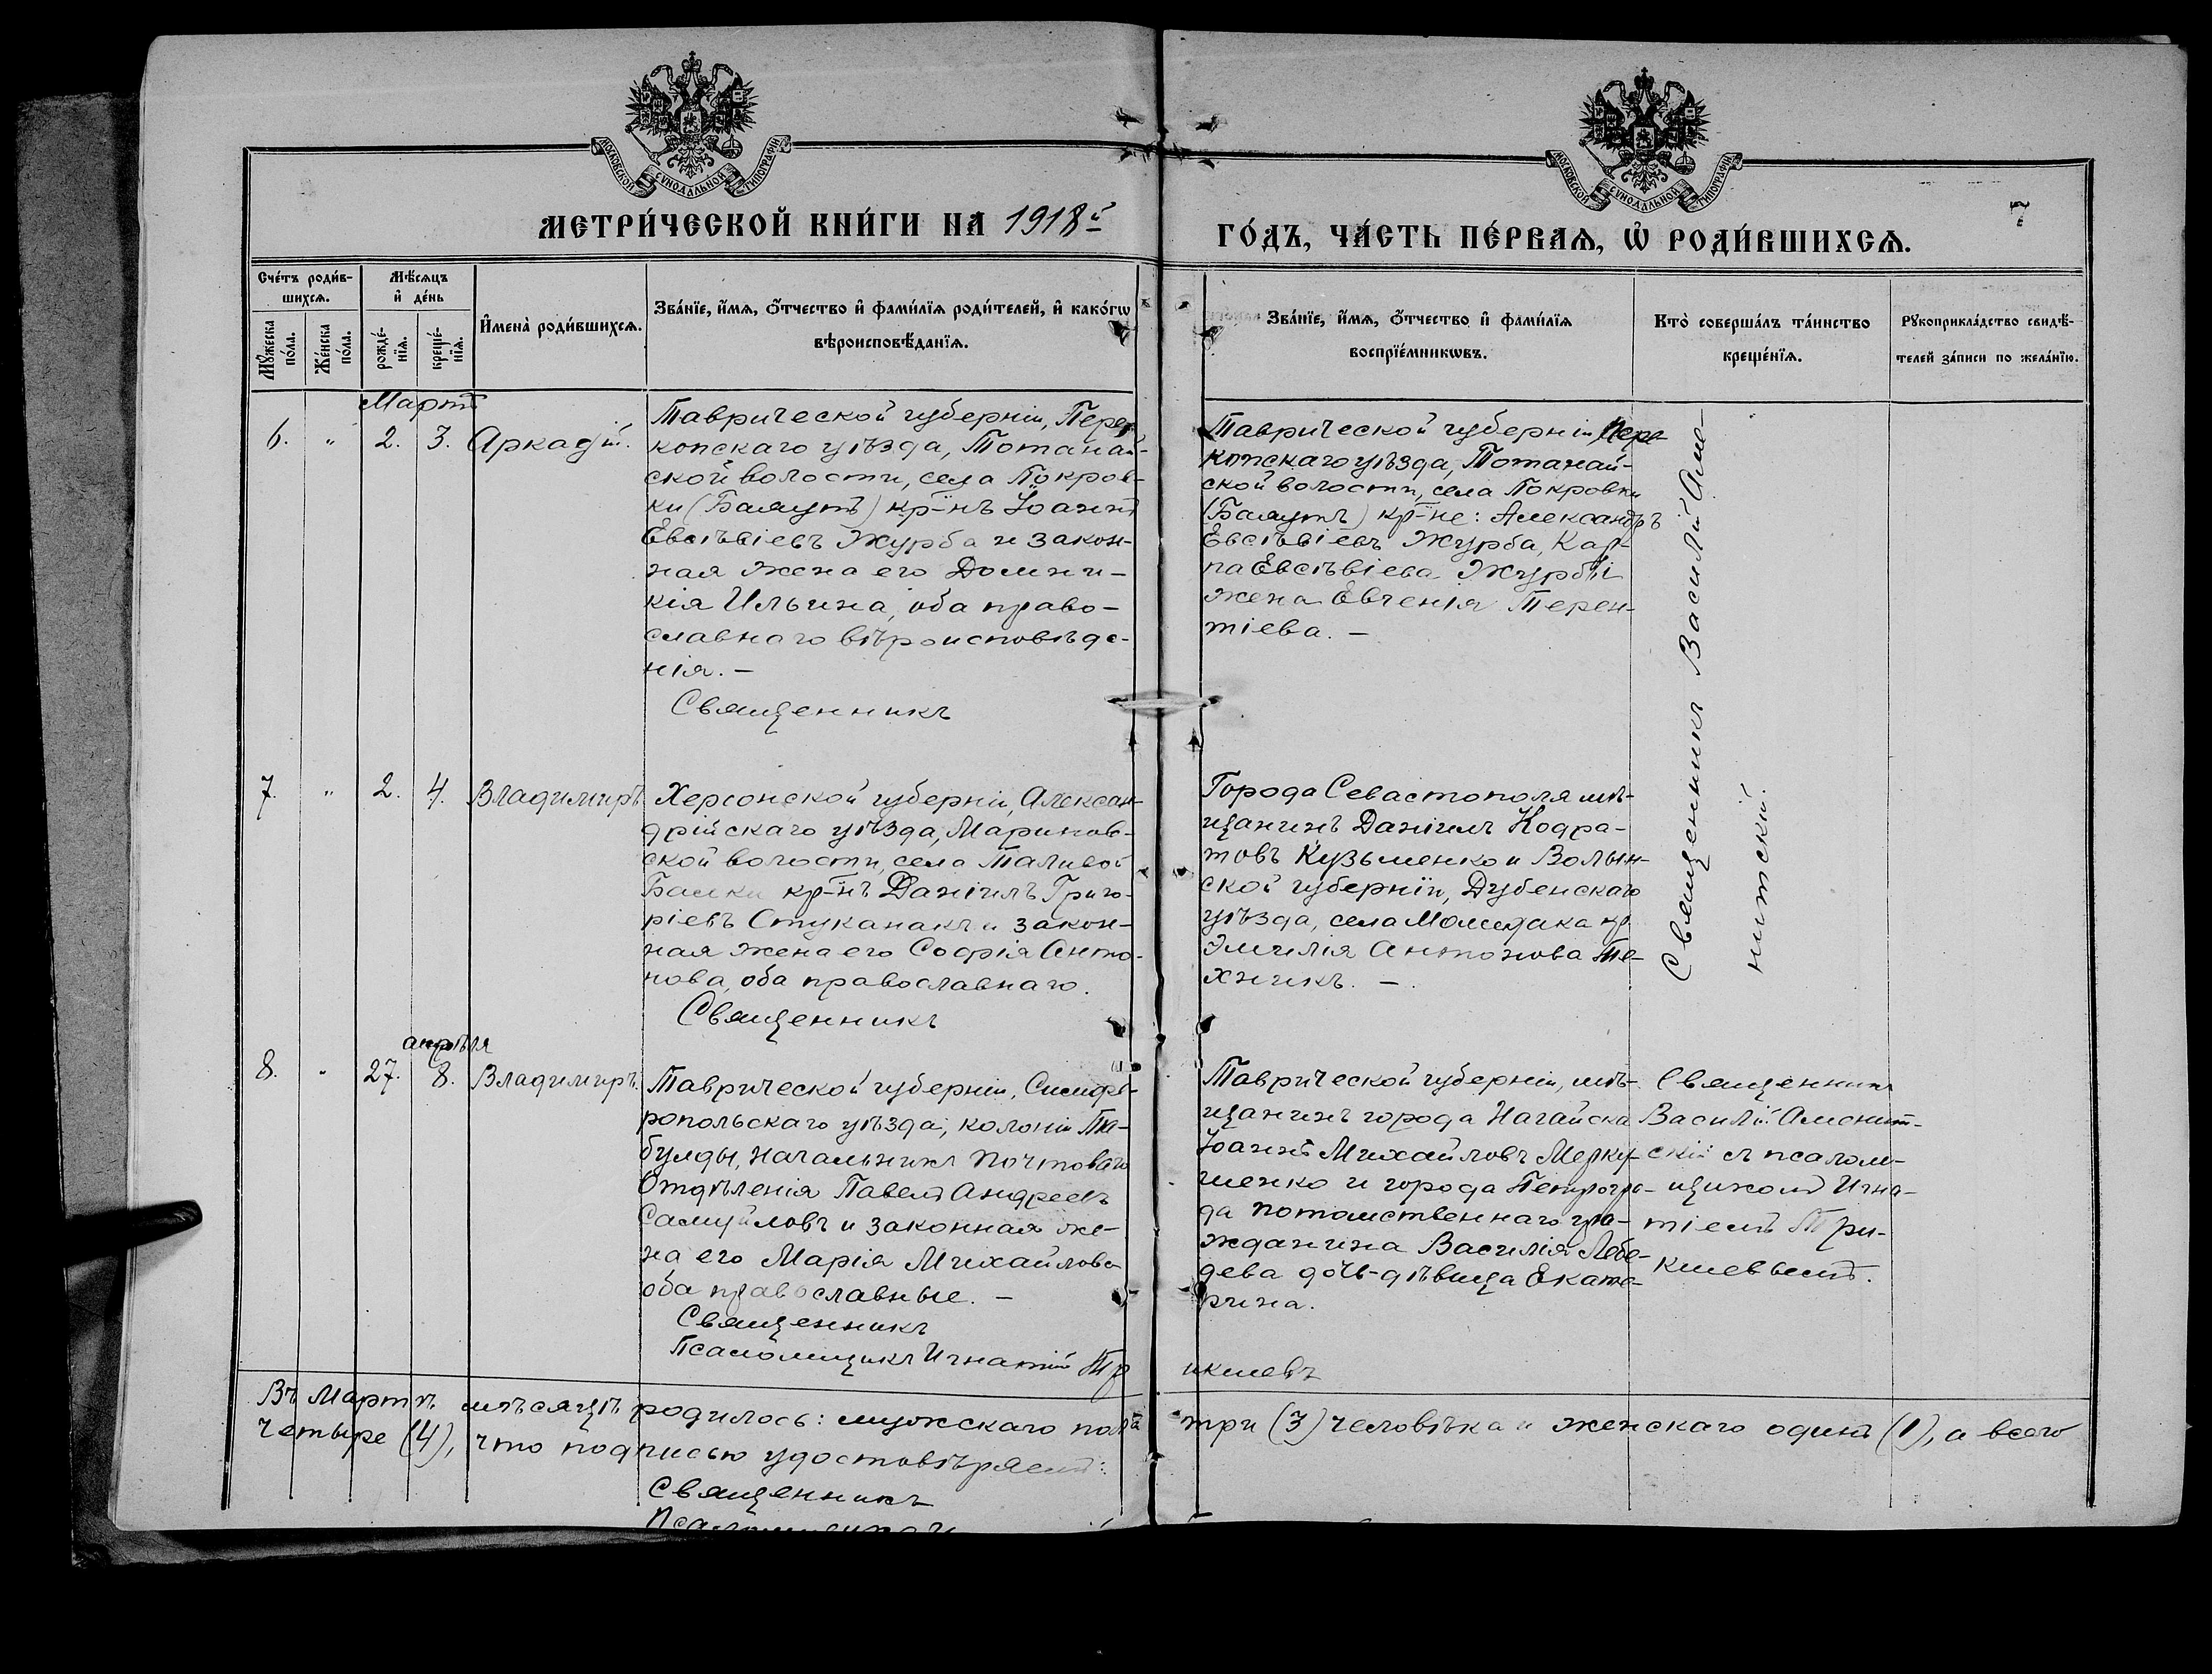 МОСКОВСКОЙ СѴНОДАЛЬНОЙ ТИПОГРАФІИ
МОСКОВСКОЙ СѴНОДАЛЬНОЙ ТИПОГРАФІИ
МЕТРИ́ЧЕСКОЙ КНИ́ГИ НА 1918й
ГО́ДЪ, ЧА́СТЬ ПЕ́РВАѦ, Ѡ҆ РОДИ́ВШИХСѦ.
7
Сче́тъ роди́в-
шихсѧ.
Мꙋ́жеска
по́ла.
Же́нска
по́ла.
Мѣ́сѧцъ
и҆ де́нь
рожде́-
нїѧ.
креще́-
нїѧ.
И҆мена̀ роди́вшихсѧ.
Зва́нїе, и҆́мѧ, ѻ҆́тчество и҆ фами́лїѧ роди́телей, и҆ како́гѡ
вѣроисповѣ́данїѧ.
Зва́нїе, и҆́мѧ, ѻ҆́тчество и҆ фами́лїѧ
воспрїе́мникѡвъ.
Кто̀ соверша́лъ та́инство
креще́нїѧ.
Рꙋкоприкла́дство свидѣ́-
телей за́писи по жела́нїю.
Мартъ
6. " 2. 3. Аркадій.
Таврической губерніи, Пере-
копскаго уѣзда, Тотанай-
ской волости, села Покров-
ки (Баяутъ) кр-нъ Іоаннъ
Евсѣвіевъ Журба и закон-
ная жена его Домни-
кія Ильина, оба право-
славнаго вѣроисповѣда-
нія. –
Священникъ
Таврической губерніи, Пере-
копскаго уѣзда, Тотанай-
ской волости, села Покровки
(Баяутъ) кр-не: Александръ
Евсѣвіевъ Журба, Кар-
па Евсѣвіева Журбы
жена Евгенія Терен-
тіева. –
Священникъ Василій Аме-
нитскій.
7. " 2. 4. Владимиръ
Херсонской губерніи, Алексан-
дрійскаго уѣзда, Маринов-
ской волости, села Талевой
Балки кр-нъ Даніилъ Григо-
ріевъ Стуканакъ и закон-
ная жена его Софія Анто-
нова, оба православнаго.
Священникъ
Города Севастополя мѣ-
щанинъ Даніилъ Кодра-
товъ Кузьменко и Волын-
ской губерніи, Дубенскаго
уѣзда, села кр.
Эмилія Антонова Те-
хникъ. –
апрѣля
8. " 27. 8. Владимиръ.
Таврической губерніи, Симфе-
ропольскаго уѣзда, колоніи Та-
булды, начальникъ Почтоваго
Отдѣленія Павелъ Андреевъ
Самуйловъ и законная же-
на его Марія Михайлова
оба православные. –
Священникъ
Псаломщикъ Игнатій Тр
икшевъ
Таврической губерніи, мѣ-
щанинъ города Нагайска
Іоаннъ Михайловъ Мерку-
шенко и города Петрогра-
да потомственнаго гра-
жданина Василія Лебе-
дева дочь-дѣвица Екате-
рина.
Священникъ
Василій Аменит-
скій съ псалом-
щикомъ Игна-
тіемъ Три-
кшевымъ.
Въ Мартѣ мѣсяцѣ родилось: мужскаго пола три (3) человѣка и женскаго одинъ (1), а всего
четыре (4), что подписью удостовѣряемъ:
Священникъ